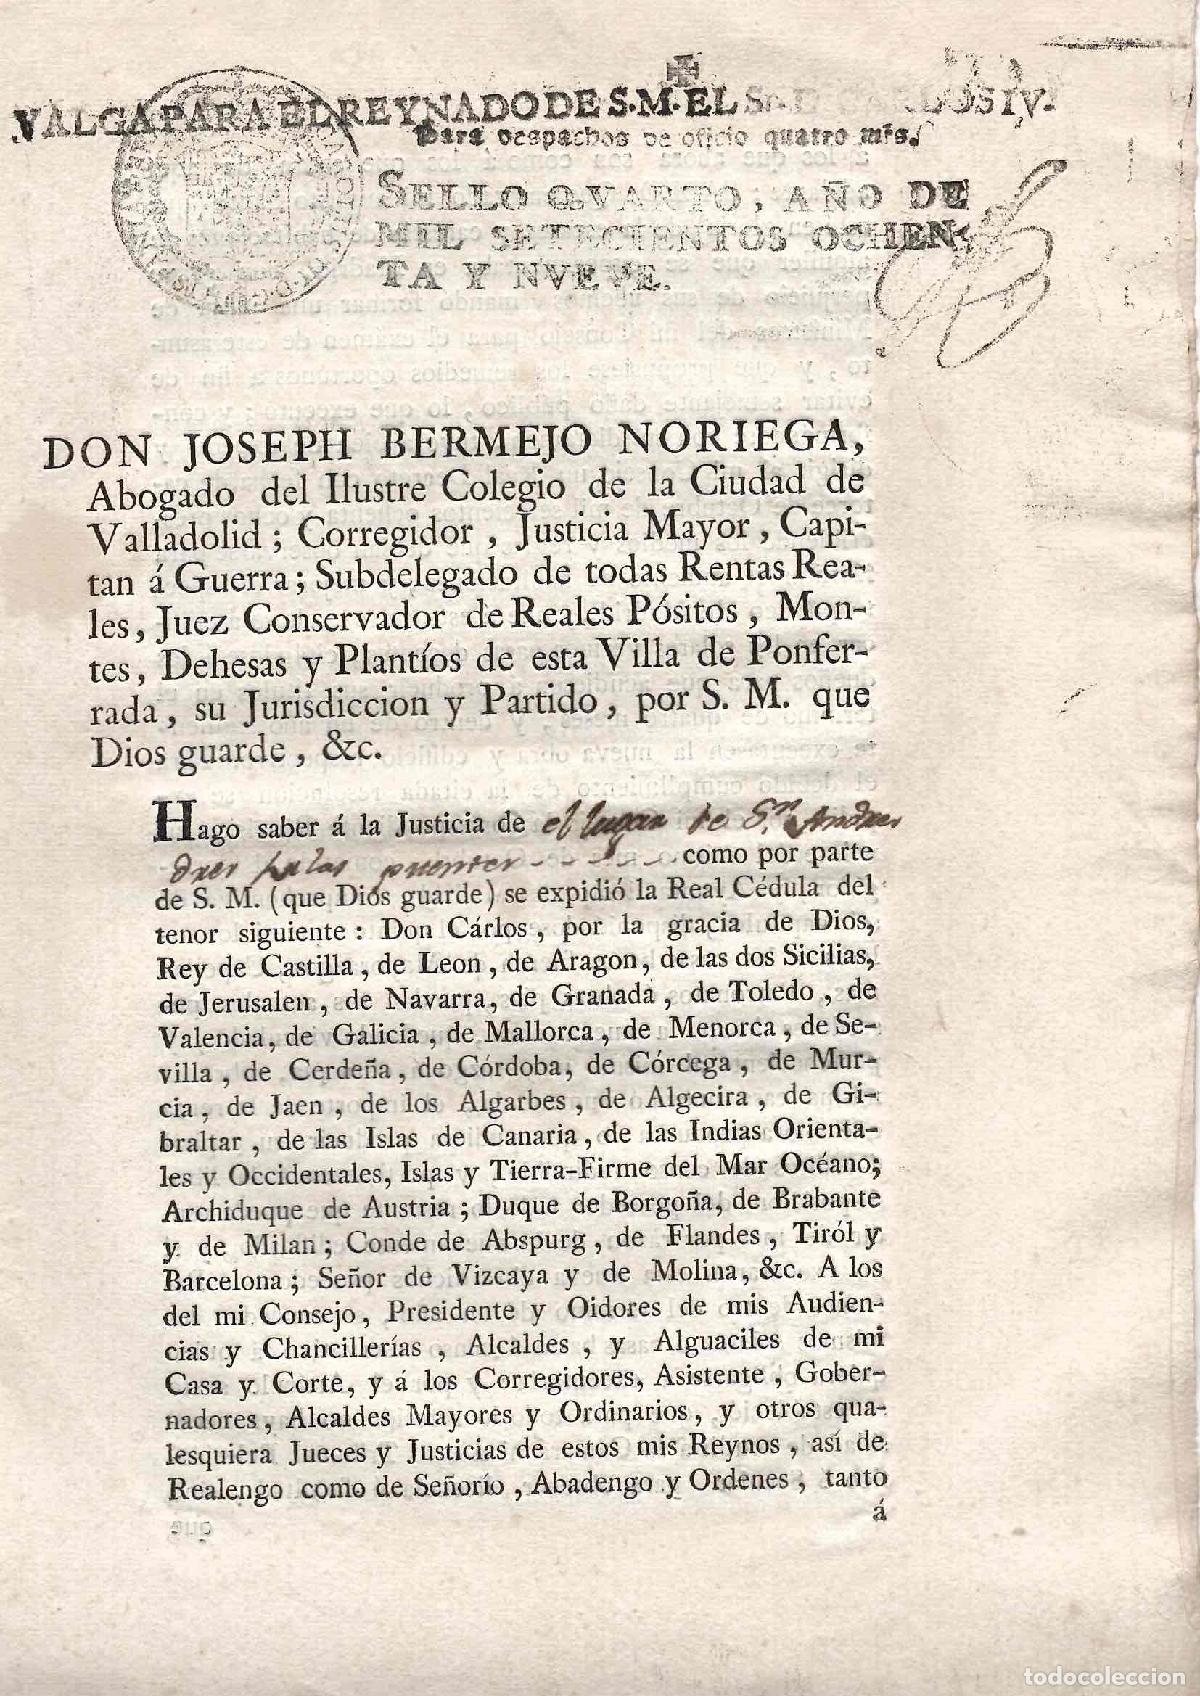 VALGA PARA EL REYNADO DE S.M. EL Sr. D. CARLOS IV.
Para despachos de oficio quatro mrs.
SELLO QVARTO, AÑO DE
MIL SETECIENTOS OCHEN-
TA Y NVEVE.
DON JOSEPH BERMEJO NORIEGA,
Abogado del Ilustre Colegio de la Ciudad de
Valladolid; Corregidor, Justicia Mayor, Capi-
tan á Guerra; Subdelegado de todas Rentas Rea-
les, Juez Conservador de Reales Pósitos, Mon-
tes, Dehesas y Plantíos de esta Villa de Ponfer-
rada, su Jurisdiccion y Partido, por S. M. que
Dios guarde, &c.
Hago saber á la Justicia de el lugar de Sn. Andres
puentes como por parte
de S. M. (que Dios guarde) se expidió la Real Cédula del
tenor siguiente: Don Cárlos, por la gracia de Dios,
Rey de Castilla, de Leon, de Aragon, de las dos Sicilias,
de Jerusalen, de Navarra, de Granada, de Toledo, de
Valencia, de Galicia, de Mallorca, de Menorca, de Se-
villa, de Cerdeña, de Córdoba, de Córcega, de Mur-
cia, de Jaen, de los Algarbes, de Algecira, de Gi-
braltar, de las Islas de Canaria, de las Indias Orienta-
les y Occidentales, Islas y Tierra-Firme del Mar Océano;
Archiduque de Austria; Duque de Borgoña, de Brabante
y de Milan; Conde de Abspurg, de Flandes, Tiról y
Barcelona; Señor de Vizcaya y de Molina, &c. A los
del mi Consejo, Presidente y Oidores de mis Audien-
cias y Chancillerías, Alcaldes, y Alguaciles de mi
Casa y Corte, y á los Corregidores, Asistente, Gober-
nadores, Alcaldes Mayores y Ordinarios, y otros qua-
lesquiera Jueces y Justicias de estos mis Reynos, así de
Realengo como de Señorío, Abadengo y Ordenes, tanto
á
todocoleccion